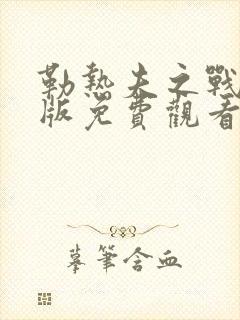 勒熱夫之戰
版免費觀看
摹筆含血